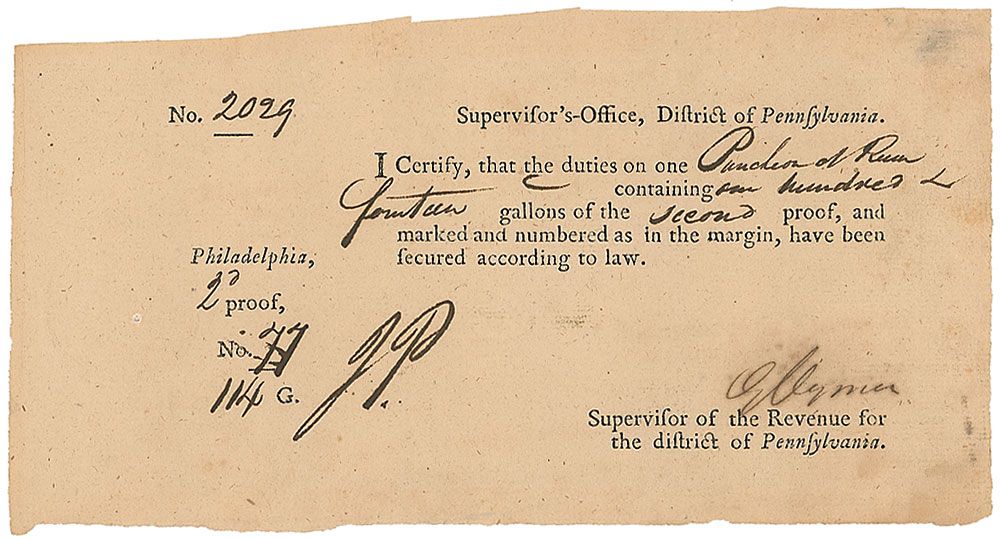 No. 2029
Superviſor's-Office, Diſtrict of Pennſylvania.
I Certify, that the duties on one Puncheon of Rum
containing one hundred &
fourteen gallons of the second proof, and
marked and numbered as in the margin, have been
ſecured according to law.
Philadelphia,
2d proof,
No. 77
114 G.
J.P.
G Clymer
Superviſor of the Revenue for
the diſtrict of Pennſylvania.